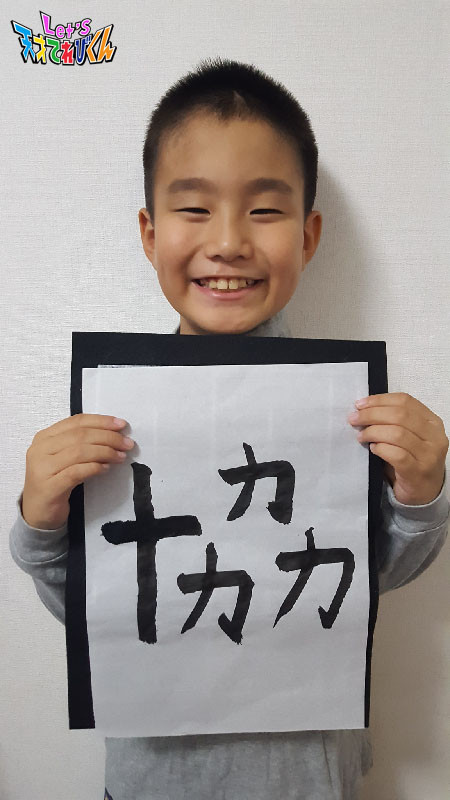 Let's
天才てれびくん
協